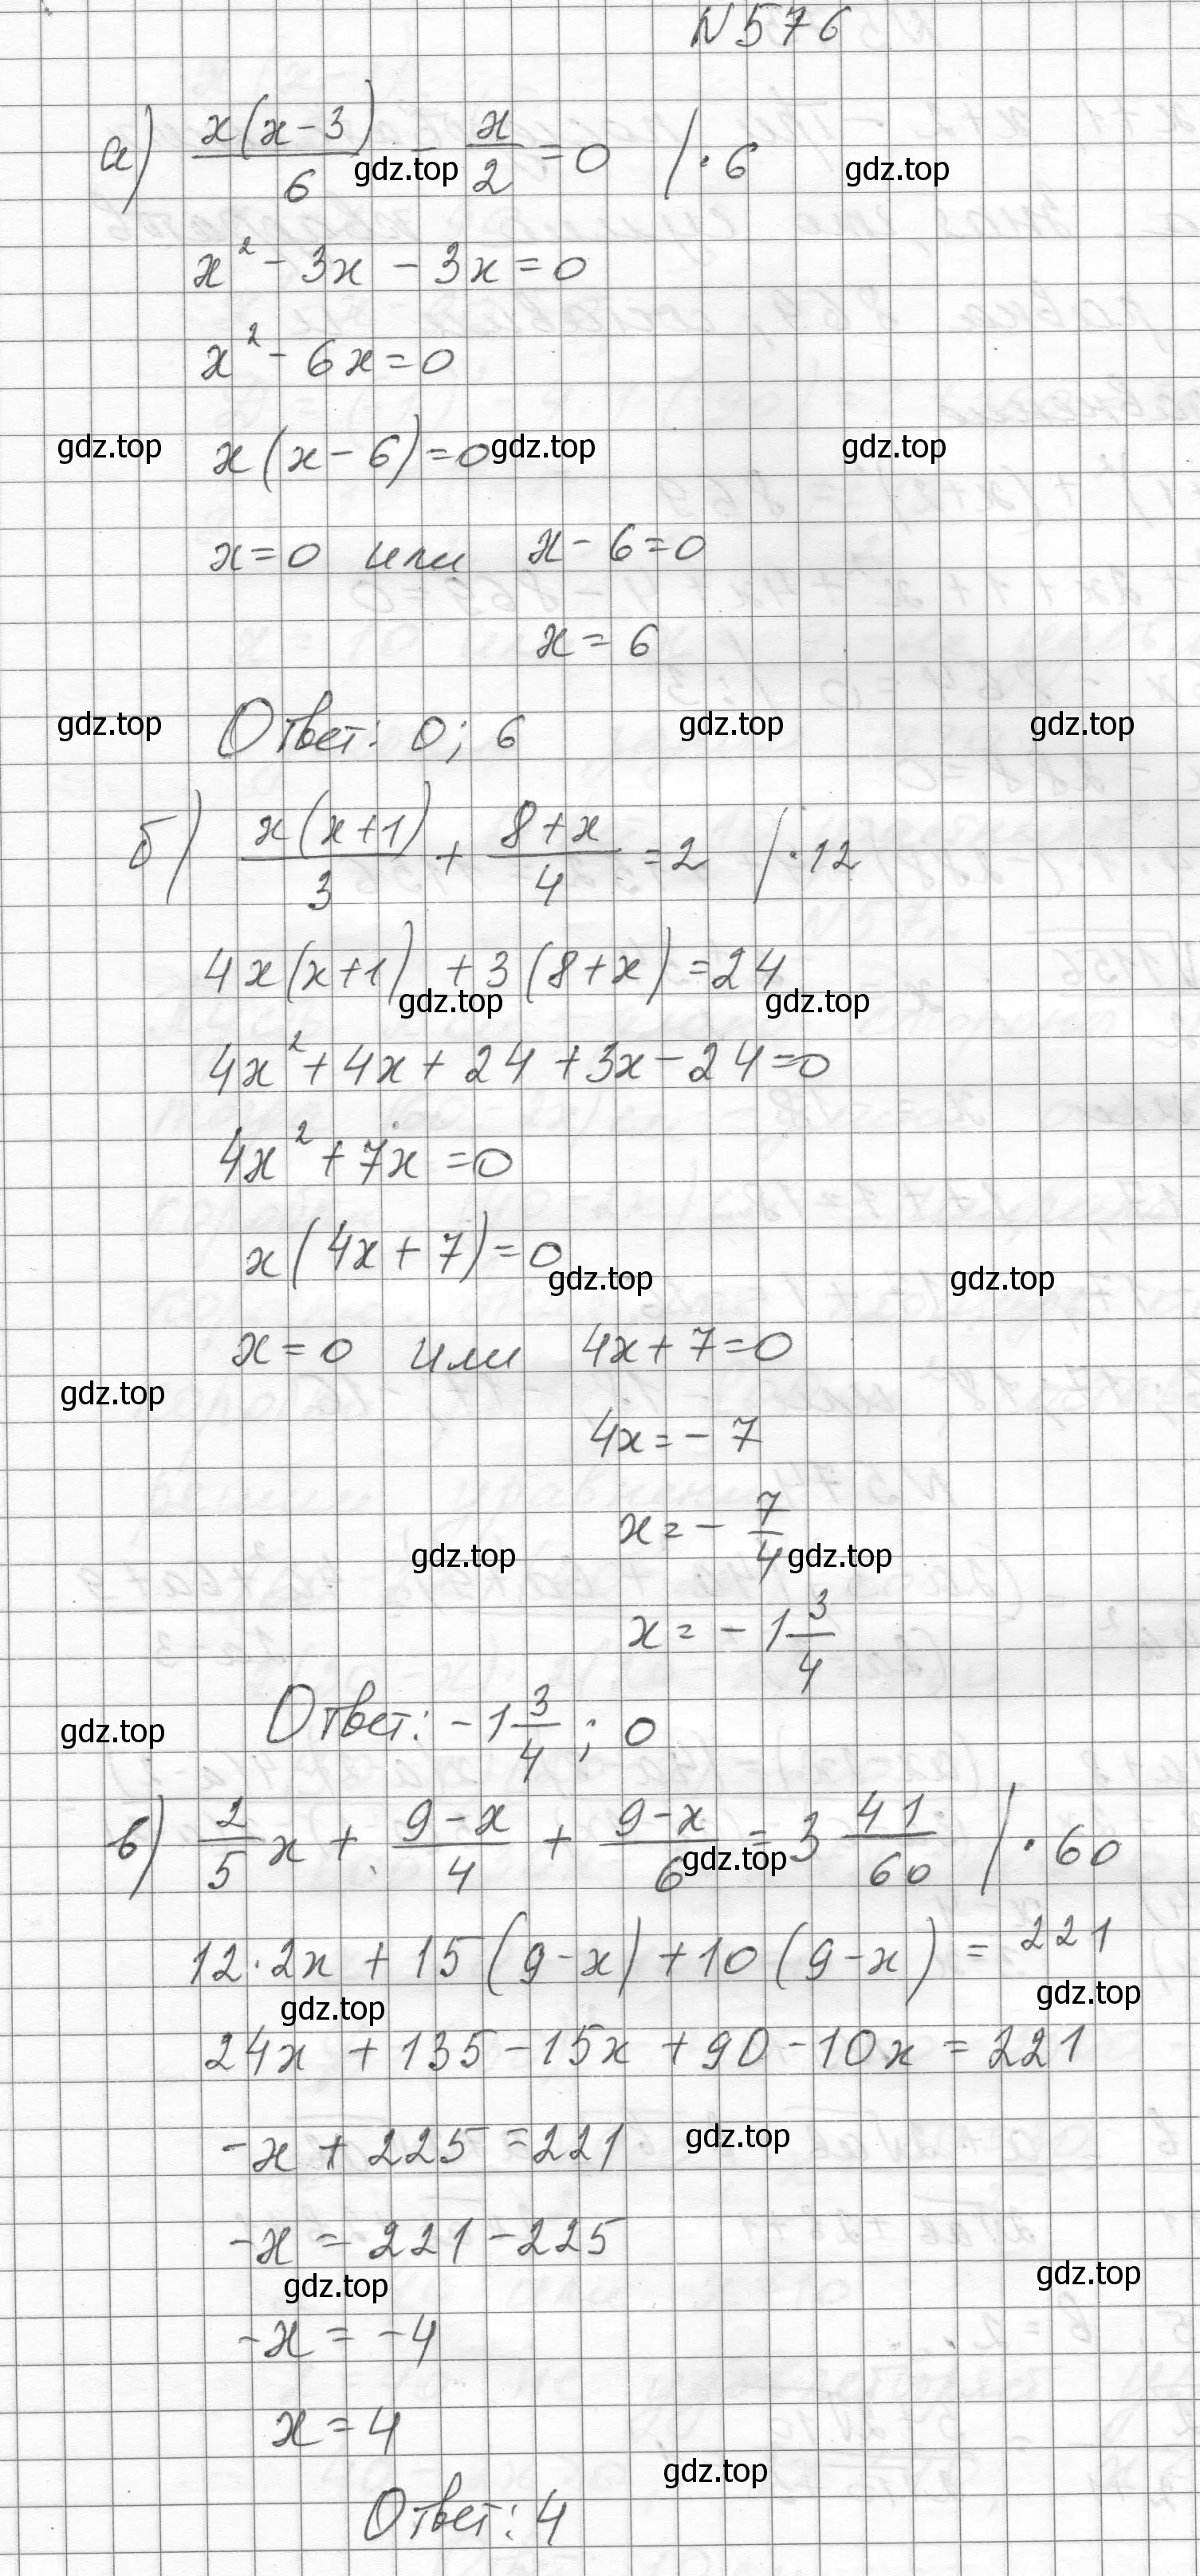 N 576
а) x(x-3)/6 - x/2 = 0 / · 6
gdz.top gdz.top
x² - 3x - 3x = 0
x² - 6x = 0
x(x - 6) = 0
gdz.top gdz.top gdz.top
x = 0 или x - 6 = 0
x = 6
Ответ: 0; 6
gdz.top gdz.top gdz.top
б) x(x+1)/3 + 8+x/4 = 2 / · 12
4x(x+1) + 3(8+x) = 24
gdz.top gdz.top
4x² + 4x + 24 + 3x - 24 = 0
4x² + 7x = 0
x(4x + 7) = 0
gdz.top gdz.top
x = 0 или 4x + 7 = 0
gdz.top
4x = - 7
x = - 7/4
gdz.top gdz.top
x = - 1 3/4
Ответ: -1 3/4; 0
gdz.top
в) 2/5 x + 9-x/4 + 9-x/6 = 3 41/60 / · 60
gdz.top
12·2x + 15(9-x) + 10(9-x) = 221
gdz.top gdz.top
24x + 135 - 15x + 90 - 10x = 221
-x + 225 = 221
gdz.top
-x = 221 - 225
gdz.top gdz.top
-x = -4
x = 4
gdz.top
Ответ: 4